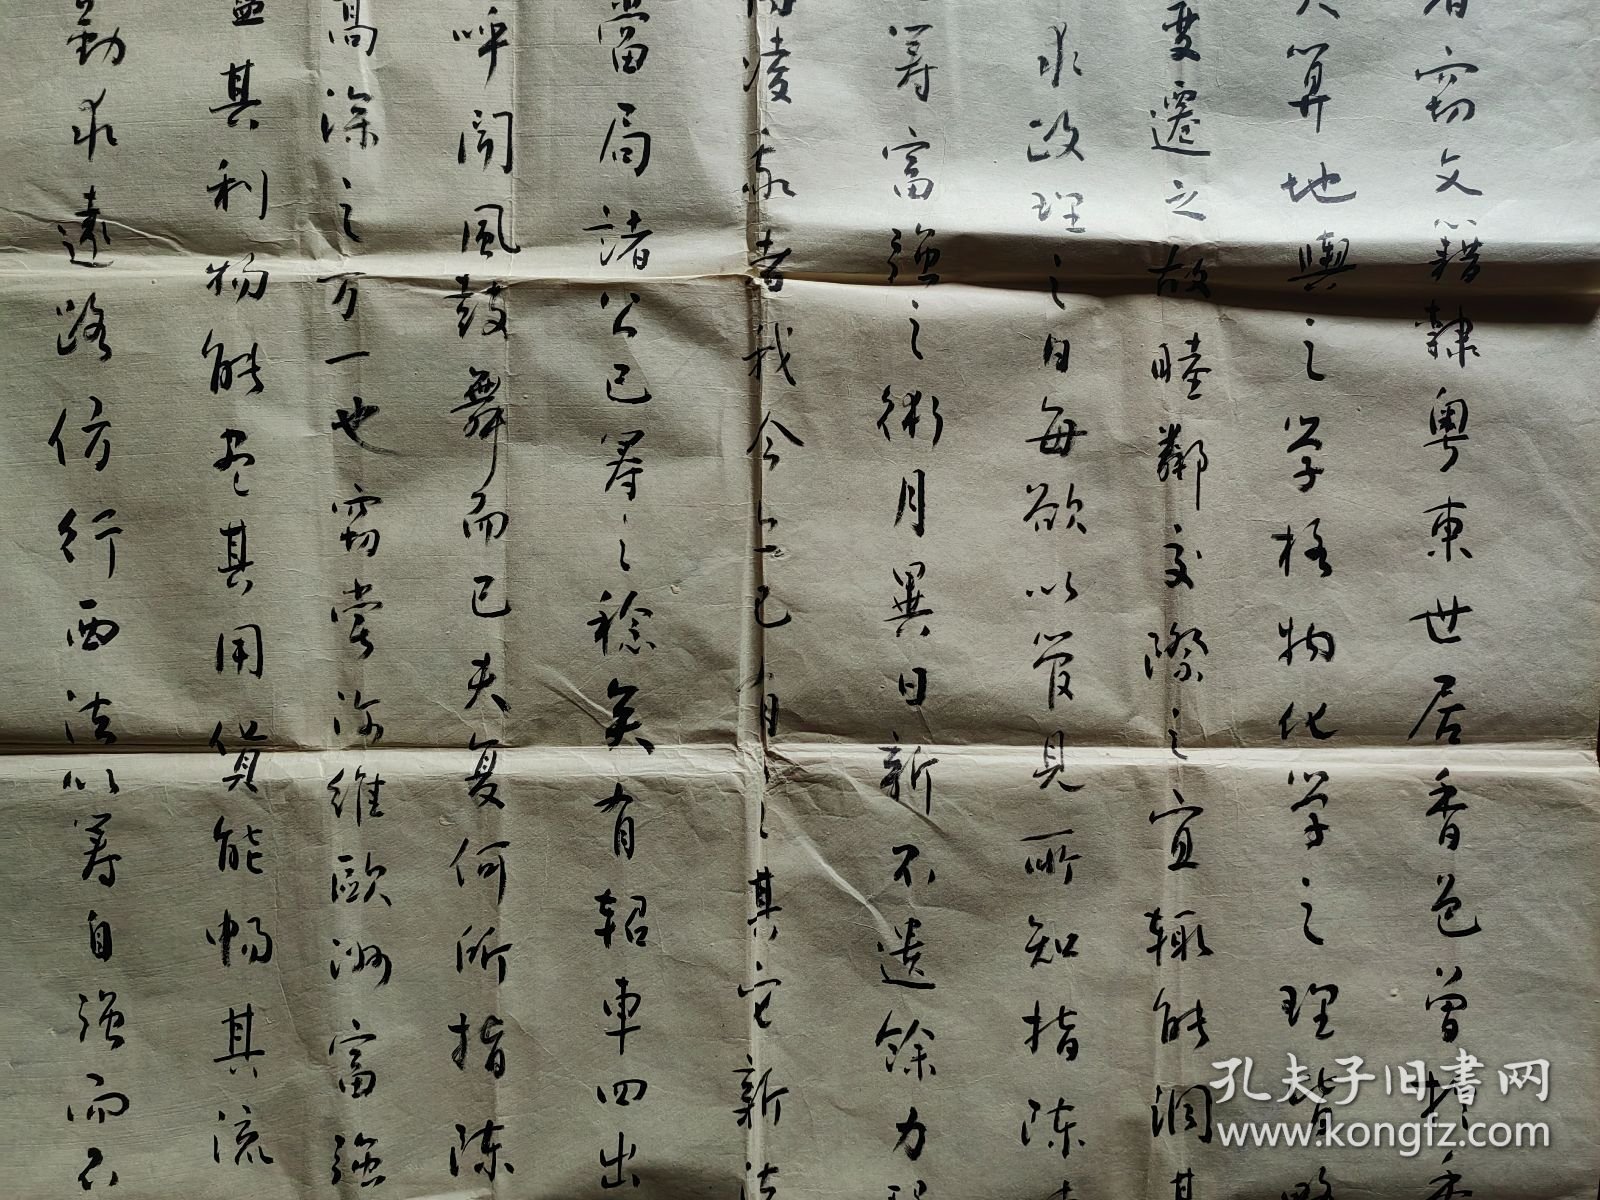 窃文籍隸粵東世居香邑曾於香
算地輿之學格物化學之理皆略
變遷之故睦鄰交際之宜輒能洞其
求政理之日每欲以管見所知指陳
籌富強之術月異日新不遺餘力
凌家者我今上已月之其它新法
當局諸公已籌之稔矣有軺車四出
呼聞風鼓舞而已夫复何所指陳
高深之万一也窃嘗深維歐洲富強
其利物能盡其用貨能暢其流
勤求遠路仿行西法以籌自強而不
孔夫子旧書网
www.kongfz.com